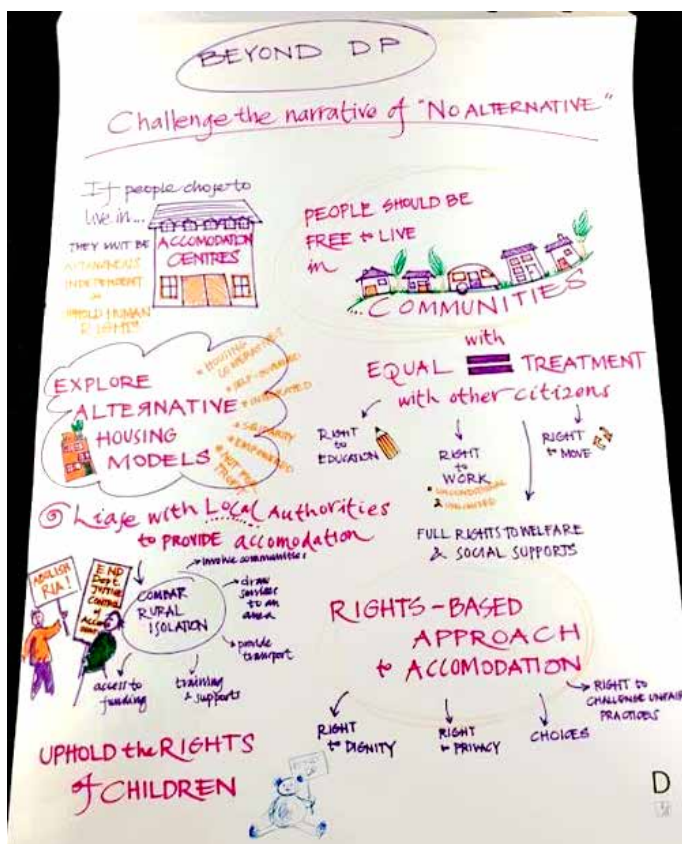 BEYOND DP
Challenge the narrative of "NO ALTERNATIVE"
If people chose to
live in...
THEY MUST BE
AUTONOMOUS
INDEPENDENT
UPHOLD HUMAN
RIGHTS
ACCOMODATION
CENTRES
PEOPLE SHOULD BE
FREE to LIVE
in
...COMMUNITIES
with
EQUAL = TREATMENT
with other citizens
RIGHT
to
EDUCATION
RIGHT
to
WORK
UNCONDITIONAL
& UNLIMITED
RIGHT
to MOVE
FULL RIGHTS TO WELFARE
& SOCIAL SUPPORTS
EXPLORE
ALTERNATIVE
HOUSING
MODELS
HOUSING
INTEGRATED
SOLIDARITY
EMPOWERED
NOT FOR
PROFIT
Liase with Local Authorities
to PROVIDE accomodation
ABOLISH
RIA!
END
Dept.
JUSTICE
CONTROL
of
COMBAT
RURAL
ISOLATION
involve communities
draw
services
to an
area
provide
transport
training
& supports
access to
funding
RIGHTS-BASED
APPROACH
to ACCOMODATION
RIGHT
to DIGNITY
RIGHT
to PRIVACY
CHOICES
RIGHT to
CHALLENGE UNFAIR
PRACTICES
UPHOLD the RIGHTS
of CHILDREN
D